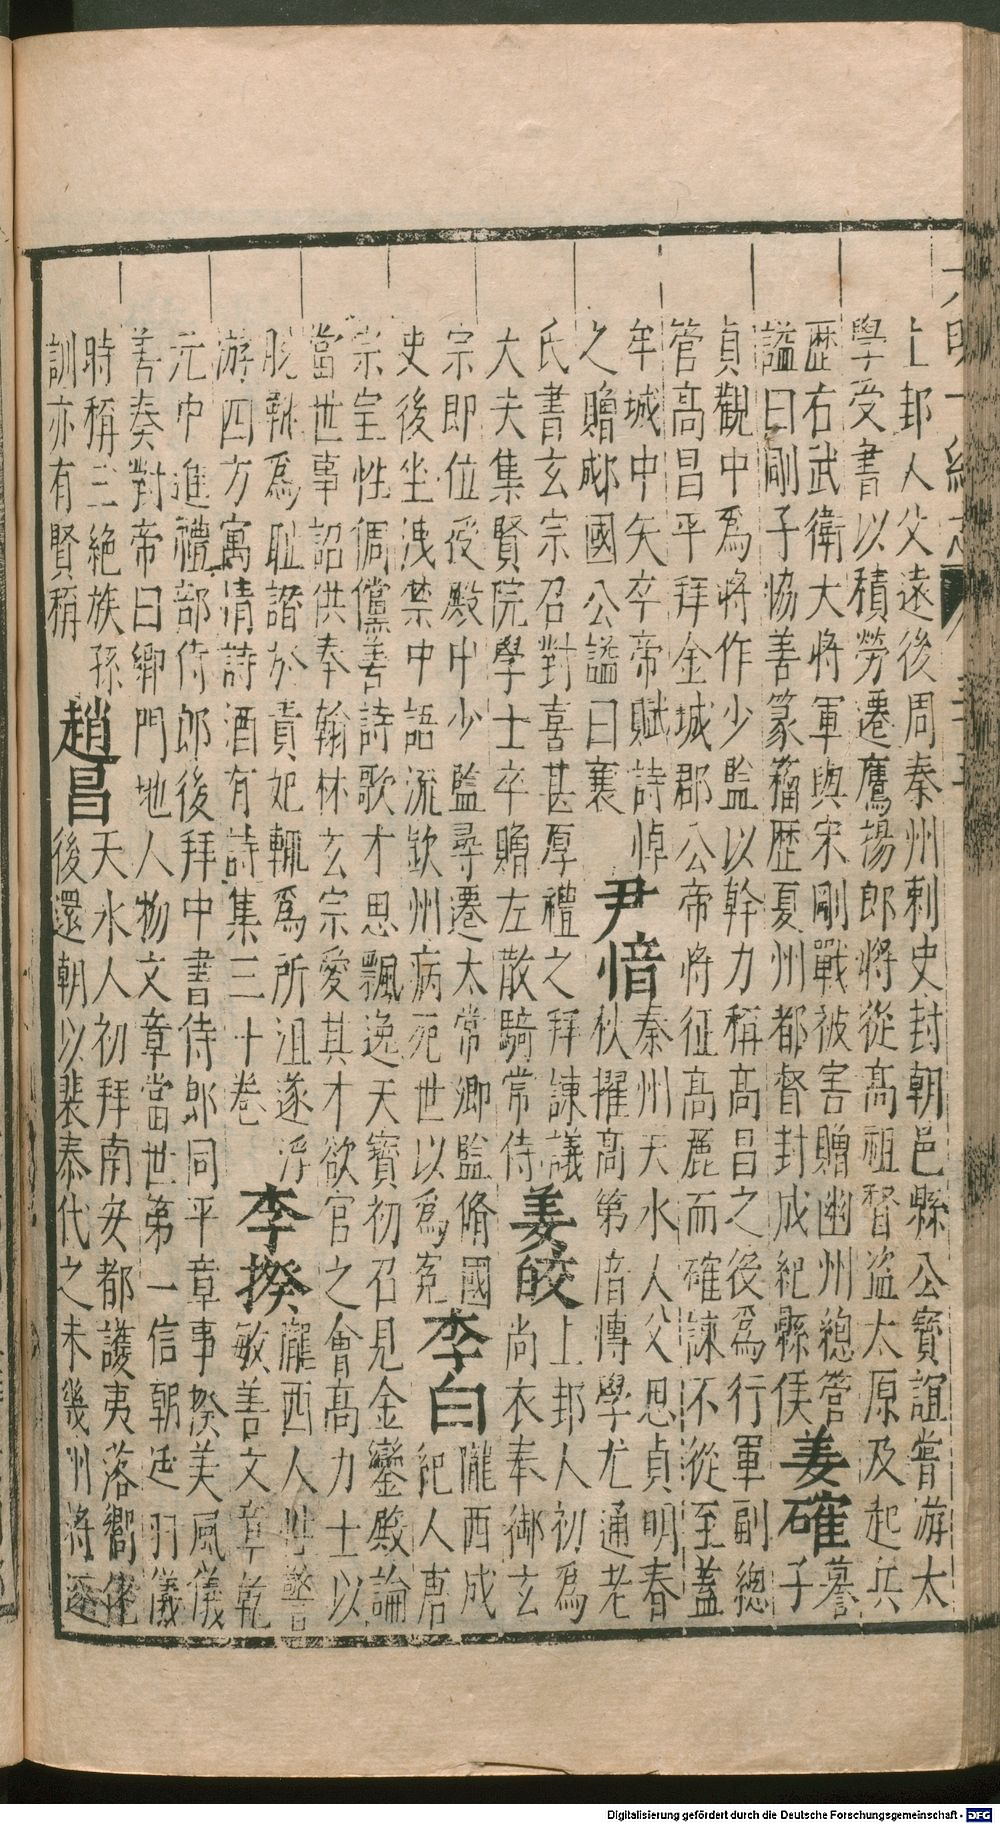 上邽人父遠後周秦州刺史封朝邑縣公寶誼嘗游太
學受書以積勞遷鷹揚郎將從高祖督盜太原及起兵
歷右武衛大將軍與宋剛戰被害贈幽州總管
諡曰剛子協善篆籀歷夏州都督封成紀縣侯
姜確
謩
子
貞觀中為將作少監以幹力稱高昌之後為行軍副總
管高昌平拜金城郡公帝將征高麗而確諫不從至蓋
牟城中矢卒帝賦詩悼
之贈郕國公諡曰襄
尹愔
秦州天水人父思貞明春
秋擢高第愔博學尤通老
氏書玄宗召對喜甚厚禮之拜諫議
大夫集賢院學士卒贈左散騎常侍
姜皎
上邽人初為
尚衣奉御玄
宗即位授殿中少監尋遷太常卿監脩國
史後坐洩禁中語流欽州病死世以為冤
李白
隴西成
紀人唐
宗室性倜儻善詩歌才思飄逸天寶初召見金鑾殿論
當世事詔供奉翰林玄宗愛其才欲官之會高力士以
脫靴為恥譖於貴妃輒為所沮遂浮
游四方寓情詩酒有詩集三十卷
李揆
隴西人性警
敏善文章乾
元中進禮部侍郎後拜中書侍郎同平章事揆美風儀
善奏對帝曰卿門地人物文章當世第一信朝廷羽儀
時稱三絕族孫
訓亦有賢稱
趙昌
天水人初拜南安都護夷落嚮化
後還朝以裴泰代之未幾州將逐
Digitalisierung gefördert durch die Deutsche Forschungsgemeinschaft - DFG